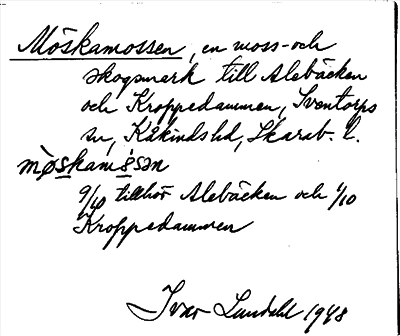 Möskamossen, en moss- och
skogsmark till Alebäcken
och Kroppedammen, Sventorps
sn, Kåkinds hd, Skarab. l.
mòskamåsən
9/10 tillhör Alebäcken och 1/10
Kroppedammen
Ivar Lundahl 1948